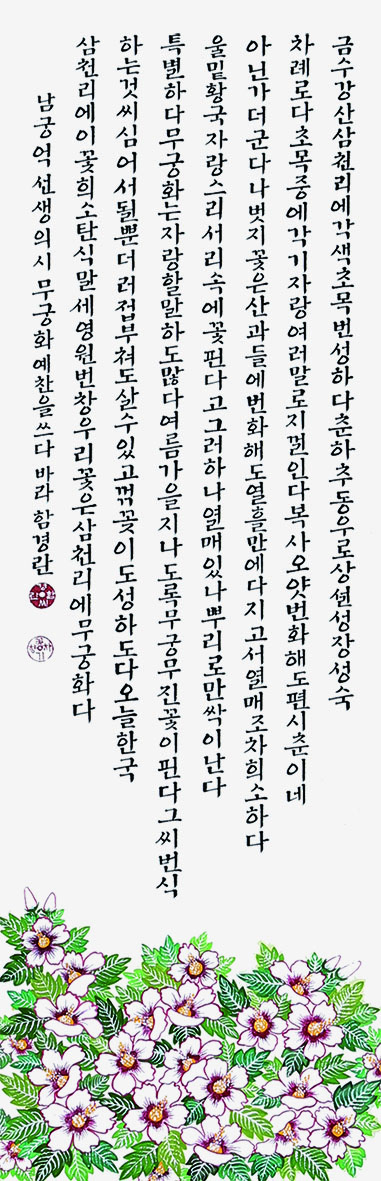 금수강산삼천리에각색초목번성하다춘하추동우로상설성장성숙
차례로다초목중에각기자랑여러말로지껄인다복사오얏번화해도편시춘이네
아닌가더군다나벗지꽃은산과들에번화해도열흘만에다지고서열매조차희소하다
울밑황국자랑스리서리속에꽃핀다고그러하나열매있나뿌리로만싹이난다
특별하다무궁화는자랑할말하도많다여름가을지나도록무궁무진꽃이핀다그씨번식
하는것씨심어서될뿐더러접부쳐도살수있고꺾꽂이도성하도다오늘한국
삼천리에이꽃희소탄식말세영원번창우리꽃은삼천리에무궁화다
남궁억 선생의시 무궁화예찬을쓰다 바라 함경란